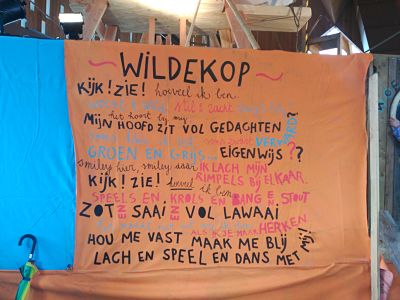 ~ WILDEKOP ~
KIJK! ZIE! hoeveel ik ben.
stil & zacht
het hoort bij mij
MIJN HOOFD ZIT VOL GEDACHTEN
soms VERWARD?
GROEN EN GRIJS... EIGENWIJS??
smiley hier, smiley daar IK LACH MIJN
RIMPELS BIJ ELKAAR.
KIJK! ZIE! hoeveel ik ben
SPEELS EN KROLS EN BANG EN STOUT
ZOT EN SAAI EN VOL LAWAAI
ALS JE ME MAAR HERKEN
HOU ME VAST MAAK ME BLIJ
LACH EN SPEEL EN DANS MET mij!